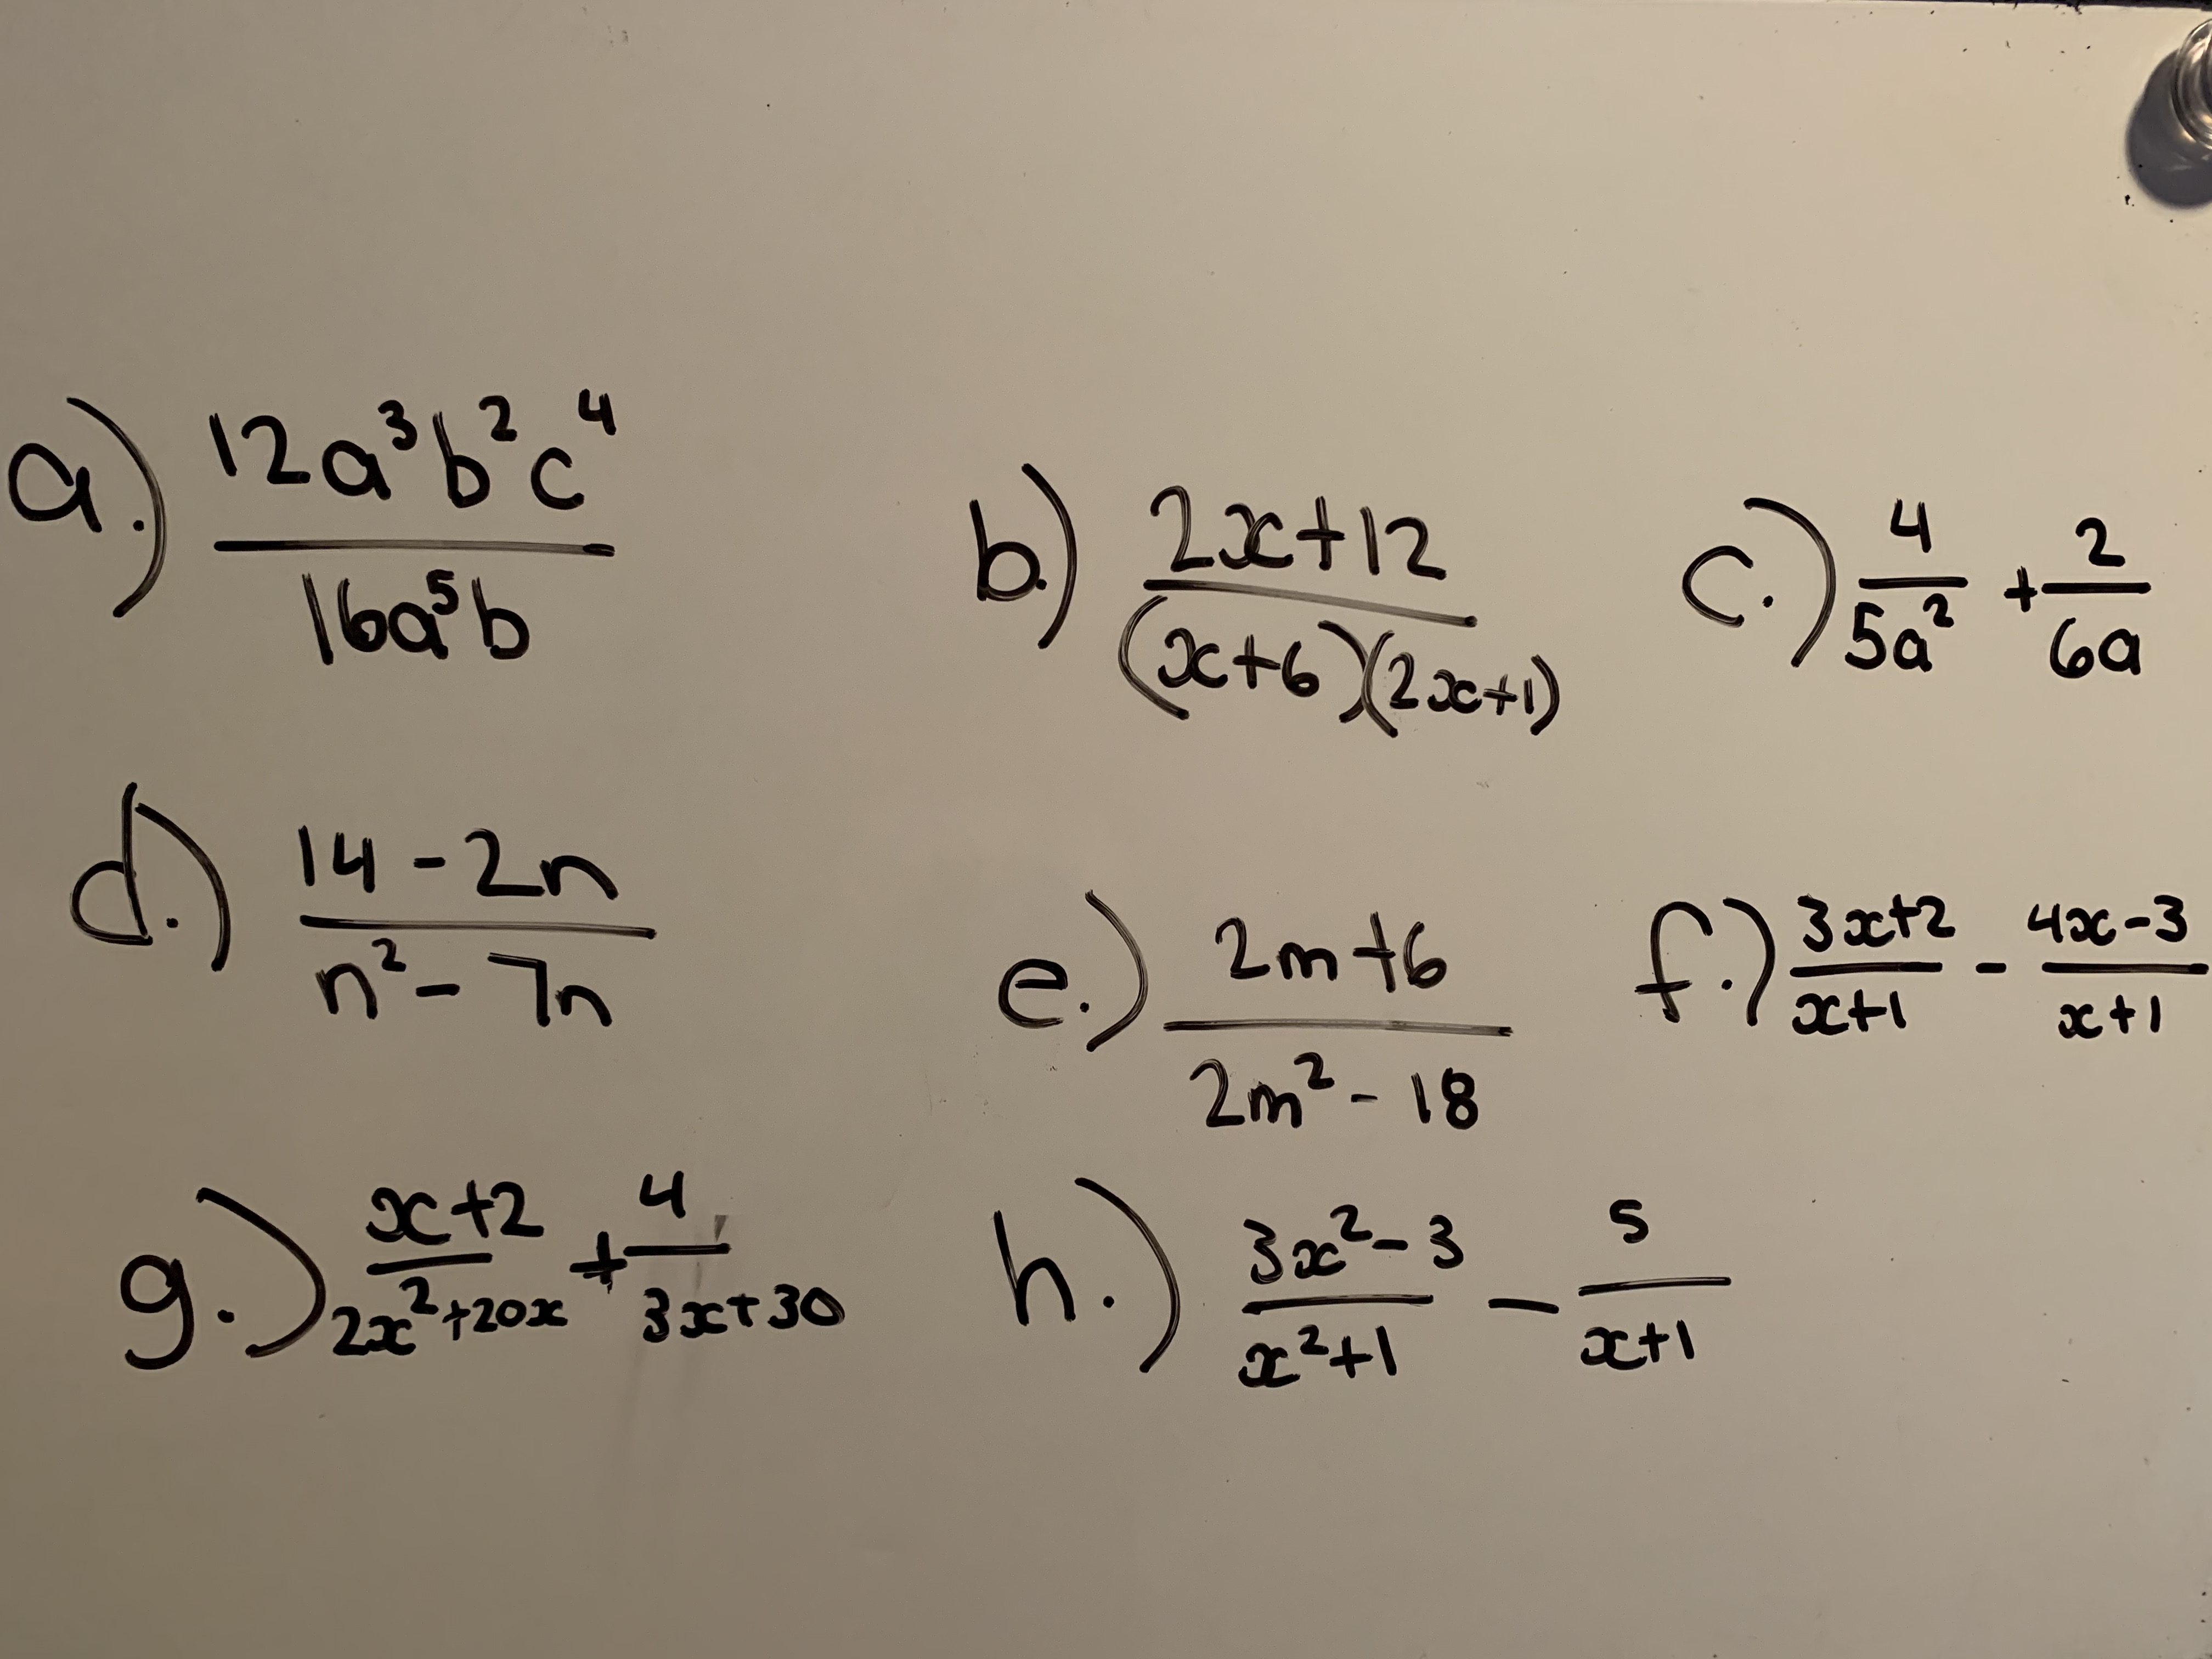 a.) 12a³b²c⁴ / 16a⁵b
b.) 2x+12 / (x+6)(2x+1)
c.) 4/5a² + 2/6a
d.) 14-2n / n²-7n
e.) 2m+6 / 2m²-18
f.) 3x+2 / x+1 - 4x-3 / x+1
g.) x+2 / 2x²+20x + 4 / 3x+30
h.) 3x²-3 / x²+1 - 5 / x+1